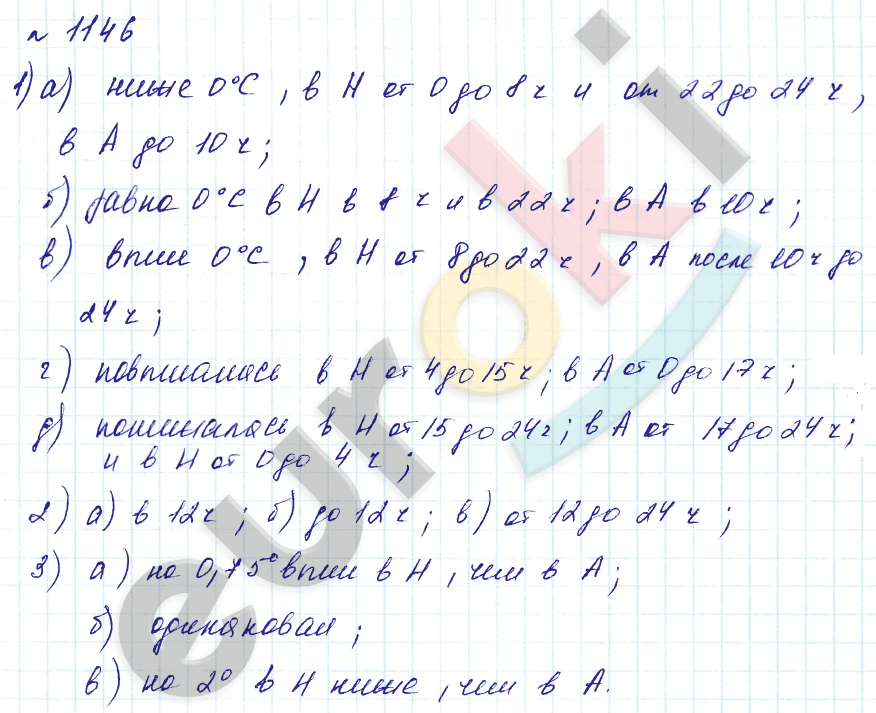 № 1146
1) а) ниже 0°С, в Н от 0 до 8 ч и от 22 до 24 ч,
в А до 10 ч;
б) равна 0°С в Н в 8 ч и в 22 ч; в А в 10 ч;
в) выше 0°С, в Н от 8 до 22 ч, в А после 10 ч до
24 ч;
г) повышалась в Н от 4 до 15 ч; в А от 0 до 17 ч;
д) понижалась в Н от 15 до 24 ч; в А от 17 до 24 ч;
и в Н от 0 до 4 ч;
2) а) в 12 ч; б) до 12 ч; в) от 12 до 24 ч;
3) а) на 0,75° выше в Н, чем в А;
б) одинаковая;
в) на 2° в Н ниже, чем в А.
euroki